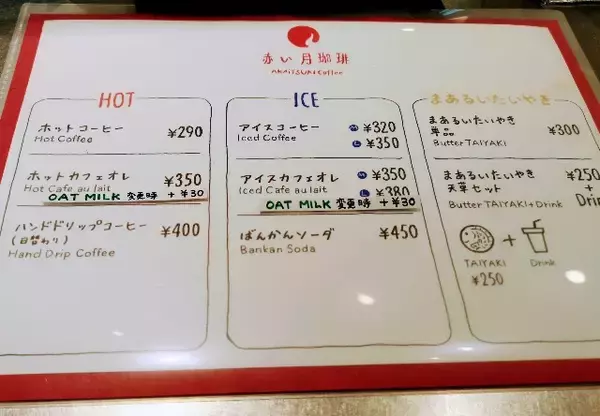 赤い月珈琲
AKAITSUKI Coffee
HOT
ホットコーヒー ¥290
Hot Coffee
ホットカフェオレ ¥350
Hot Cafe au lait
OAT MILK 変更時 + ¥30
ハンドドリップコーヒー ¥400
(日替わり)
Hand Drip Coffee
ICE
アイスコーヒー M ¥320
Iced Coffee L ¥350
アイスカフェオレ M ¥350
Iced Cafe au lait L ¥380
OAT MILK 変更時 + ¥30
ばんかんソーダ ¥450
Bankan Soda
まあるいたいやき
まあるいたいやき
単品 ¥300
Butter TAIYAKI
まあるいたいやき ¥250
セット +
Butter TAIYAKI+Drink Drin
+
TAIYAKI Drink
¥250